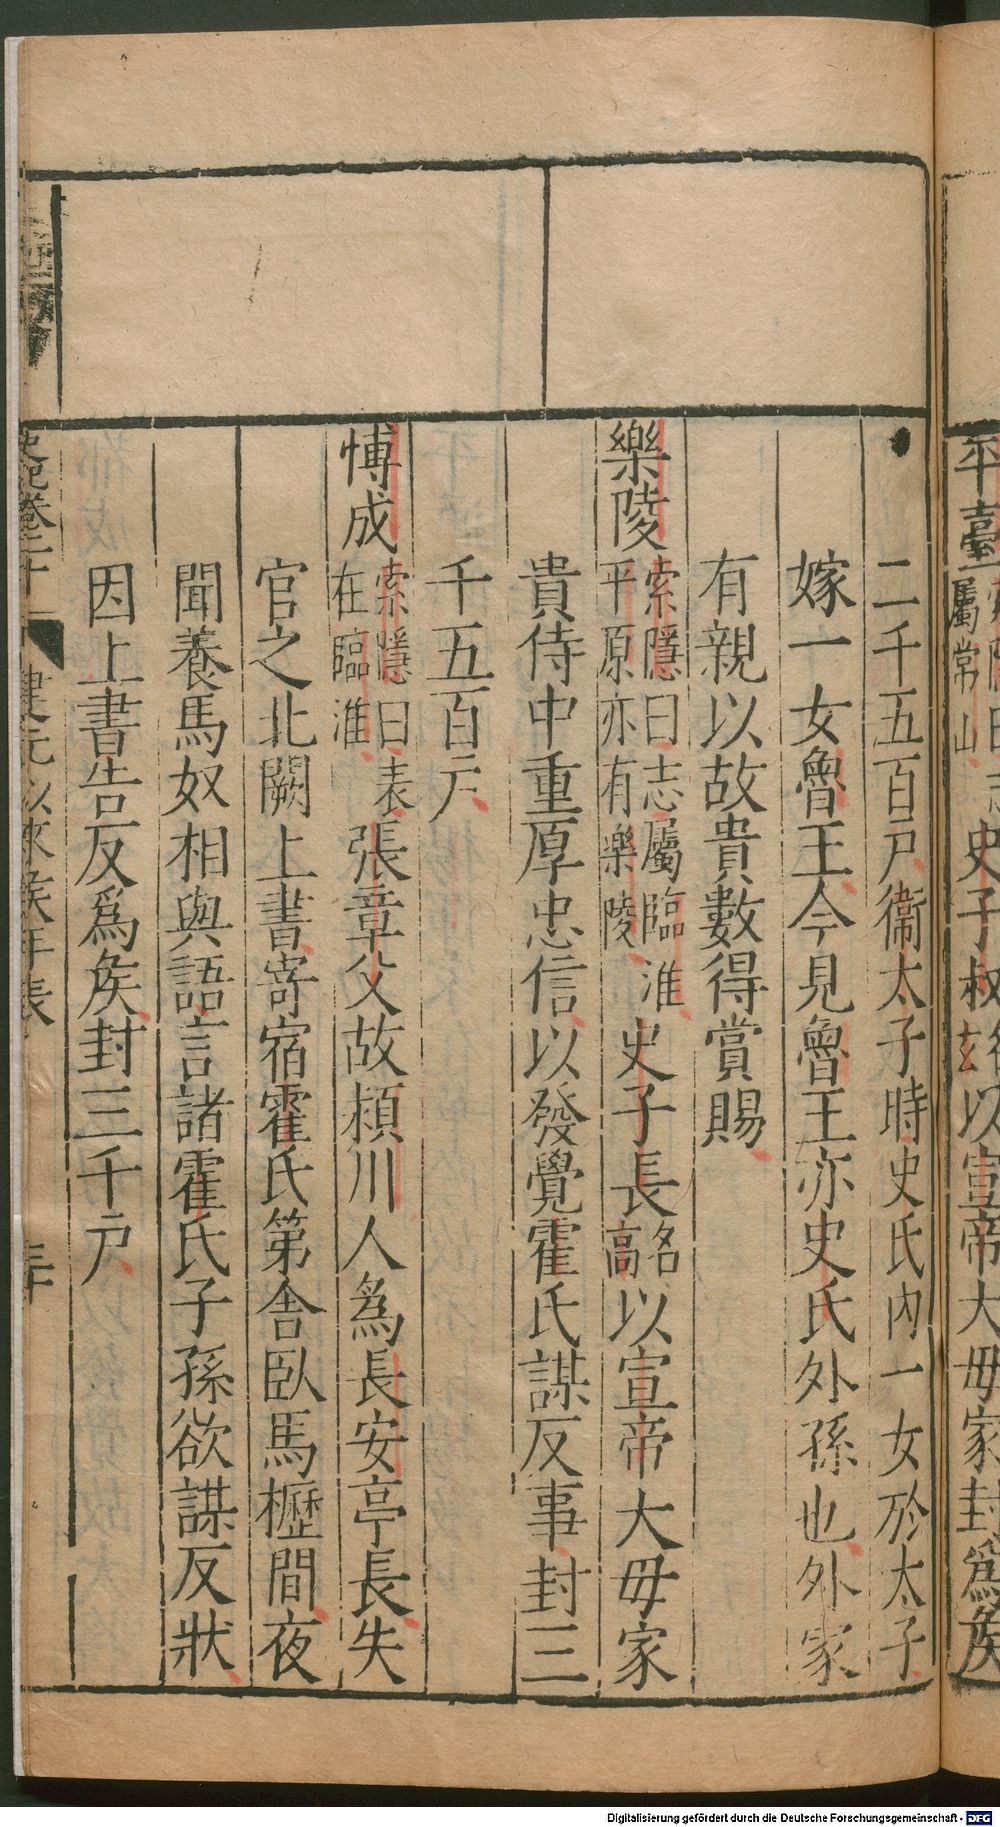 平臺屬常山史子叔以宣帝大毋家封爲矦
二千五百戸衞太子時史氏內一女於太子
嫁一女魯王今見魯王亦史氏外孫也外家
有親以故貴數得賞賜
樂陵索隱曰志屬臨淮平原亦有樂陵史子長名高以宣帝大毋家
貴侍中重厚忠信以發覺霍氏謀反事封三
千五百戸
愽成索隱曰表在臨淮張章父故潁川人爲長安亭長失
官之北闕上書寄宿霍氏第舍臥馬櫪間夜
聞養馬奴相與語言諸霍氏子孫欲謀反狀
因上書告反爲矦封三千戸
史記卷二十 建元以來矦年表 三十
Digitalisierung gefördert durch die Deutsche Forschungsgemeinschaft - DFG